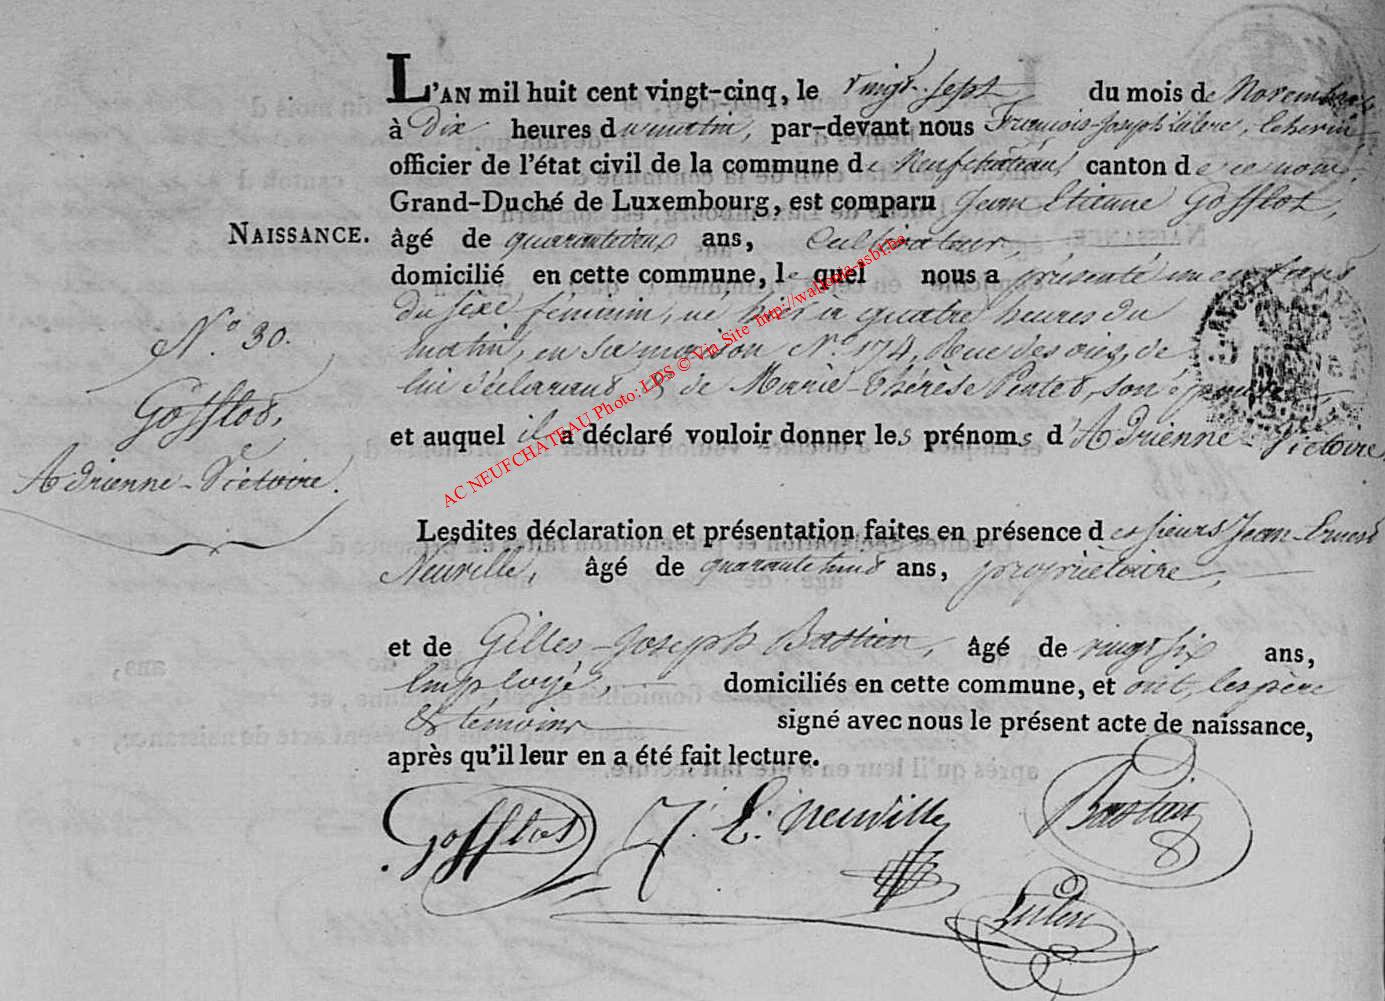 L'AN mil huit cent vingt-cinq, le vingt-sept du mois de Novembre
à dix heures du matin, par-devant nous François-Joseph
officier de l'état civil de la commune de Neufchâteau, canton de ce nom,
Grand-Duché de Luxembourg, est comparu Jean Etienne Gofflot,
NAISSANCE.
âgé de quarante deux ans, Cultivateur,
domicilié en cette commune, lequel nous a présenté un enfant
du sexe féminin, né hier à quatre heures du
matin, en sa maison N.º 174, Rue des oies, de
lui déclarant & de Marie-Thérèse, son épouse
et auquel il a déclaré vouloir donner les prénoms d'Adrienne-Victoire
N.º 30.
Gofflot,
Adrienne-Victoire.
Lesdites déclaration et présentation faites en présence des sieurs Jean Ernest
Neuville, âgé de ans, propriétaire,
et de Gilles-Joseph Bastien, âgé de vingt six ans,
Employé, domiciliés en cette commune, et ont, les père
& témoins signé avec nous le présent acte de naissance,
après qu'il leur en a été fait lecture.
Gofflot J. E. Neuville Bastien
AC NEUFCHATEAU Photo: LDS © Via Site http://wallonia-asbl.be